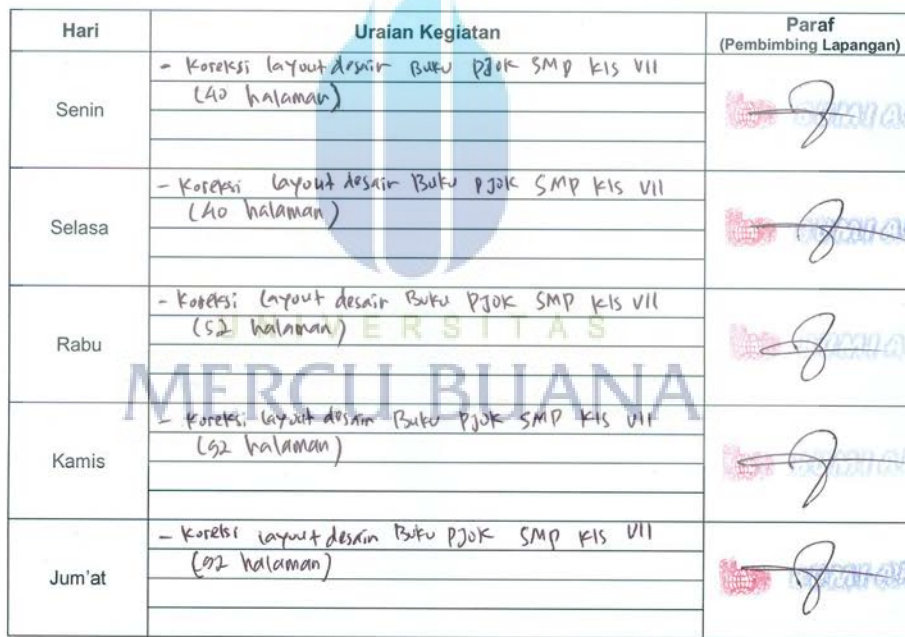 Hari Uraian Kegiatan Paraf
(Pembimbing Lapangan)
Senin
- Koreksi layout desain Buku PJOK SMP kls VII
(40 halaman)
Selasa
- Koreksi layout desain Buku PJOK SMP kls VII
(40 halaman)
Rabu
- Koreksi layout desain Buku PJOK SMP kls VII
(52 halaman)
UNIVERSITAS
MERCU BUANA
Kamis
- Koreksi layout desain Buku PJOK SMP kls VII
halaman)
Jum'at
- Koreksi layout desain Buku PJOK SMP kls VII
halaman)